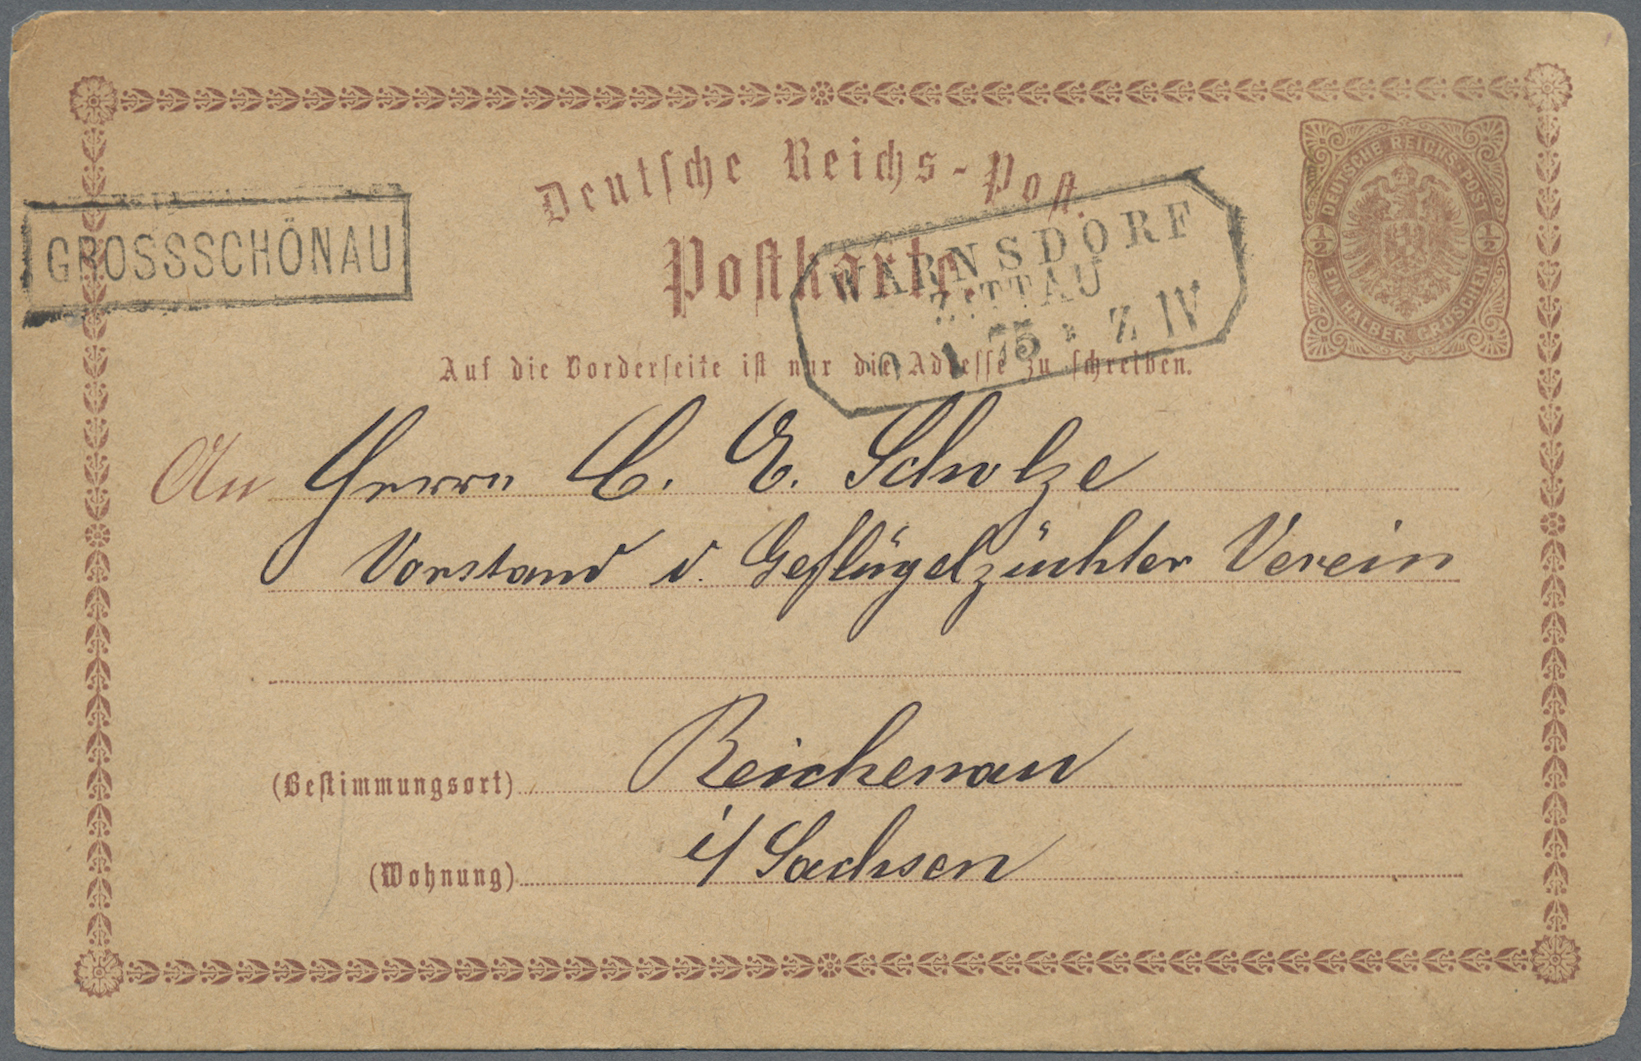 Deutsche Reichs-Post.
DEUTSCHE REICHS-POST
½ ½
EIN HALBER GROSCHEN
GROSSSCHÖNAU
Postkarte.
WARNSDORF
ZITTAU
75 Z IV
Auf die Vorderseite ist nur die Adresse zu schreiben.
An Herrn C. E. Scholze
Vorstand d. Geflügelzüchter Verein
(Bestimmungsort) Reichenau
(Wohnung) i/ Sachsen